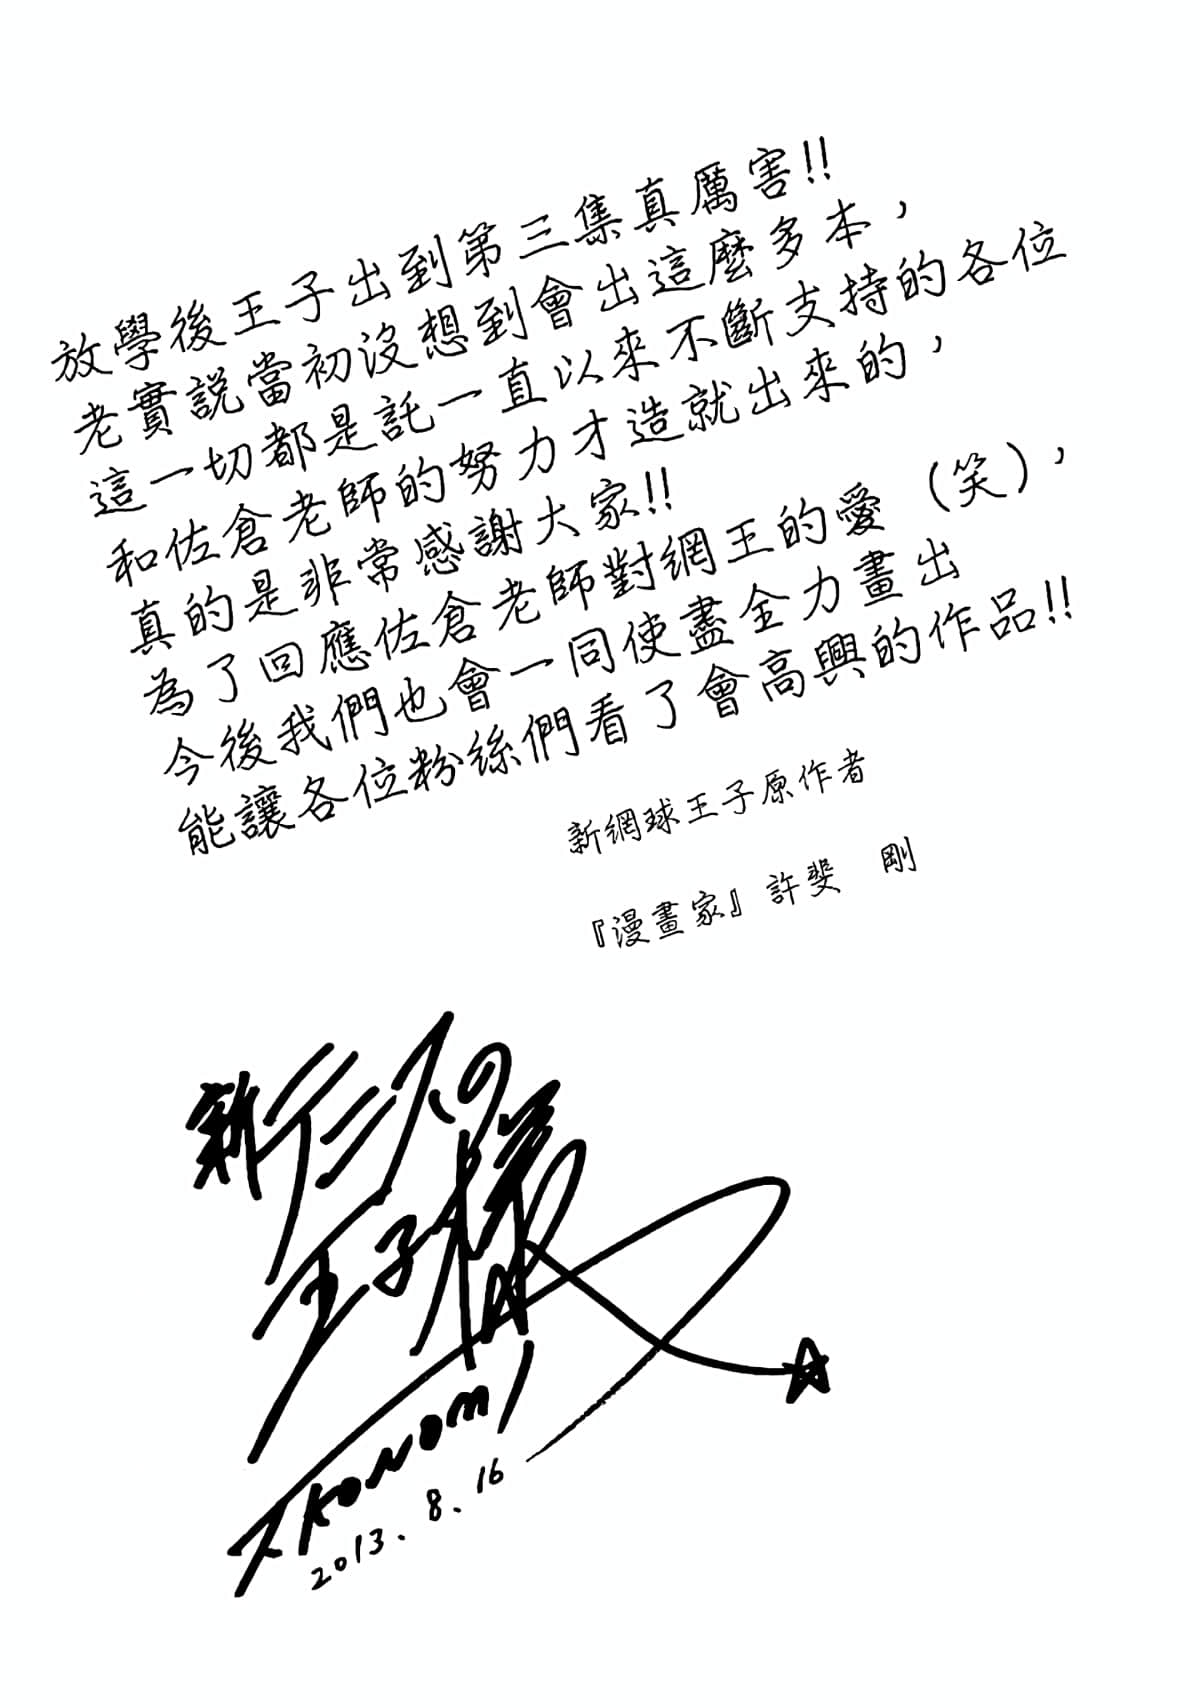 放學後王子出到第三集真厲害!!
老實說當初沒想到會出這麼多本，
這一切都是託一直以來不斷支持的各位
和佐倉老師的努力才造就出來的，
真的是非常感謝大家!!
為了回應佐倉老師對網王的愛（笑），
今後我們也會一同使盡全力畫出
能讓各位粉絲們看了會高興的作品!!
新網球王子原作者
『漫畫家』許斐　剛
新テニスの
王子様
T KONOMI
2013.8.16